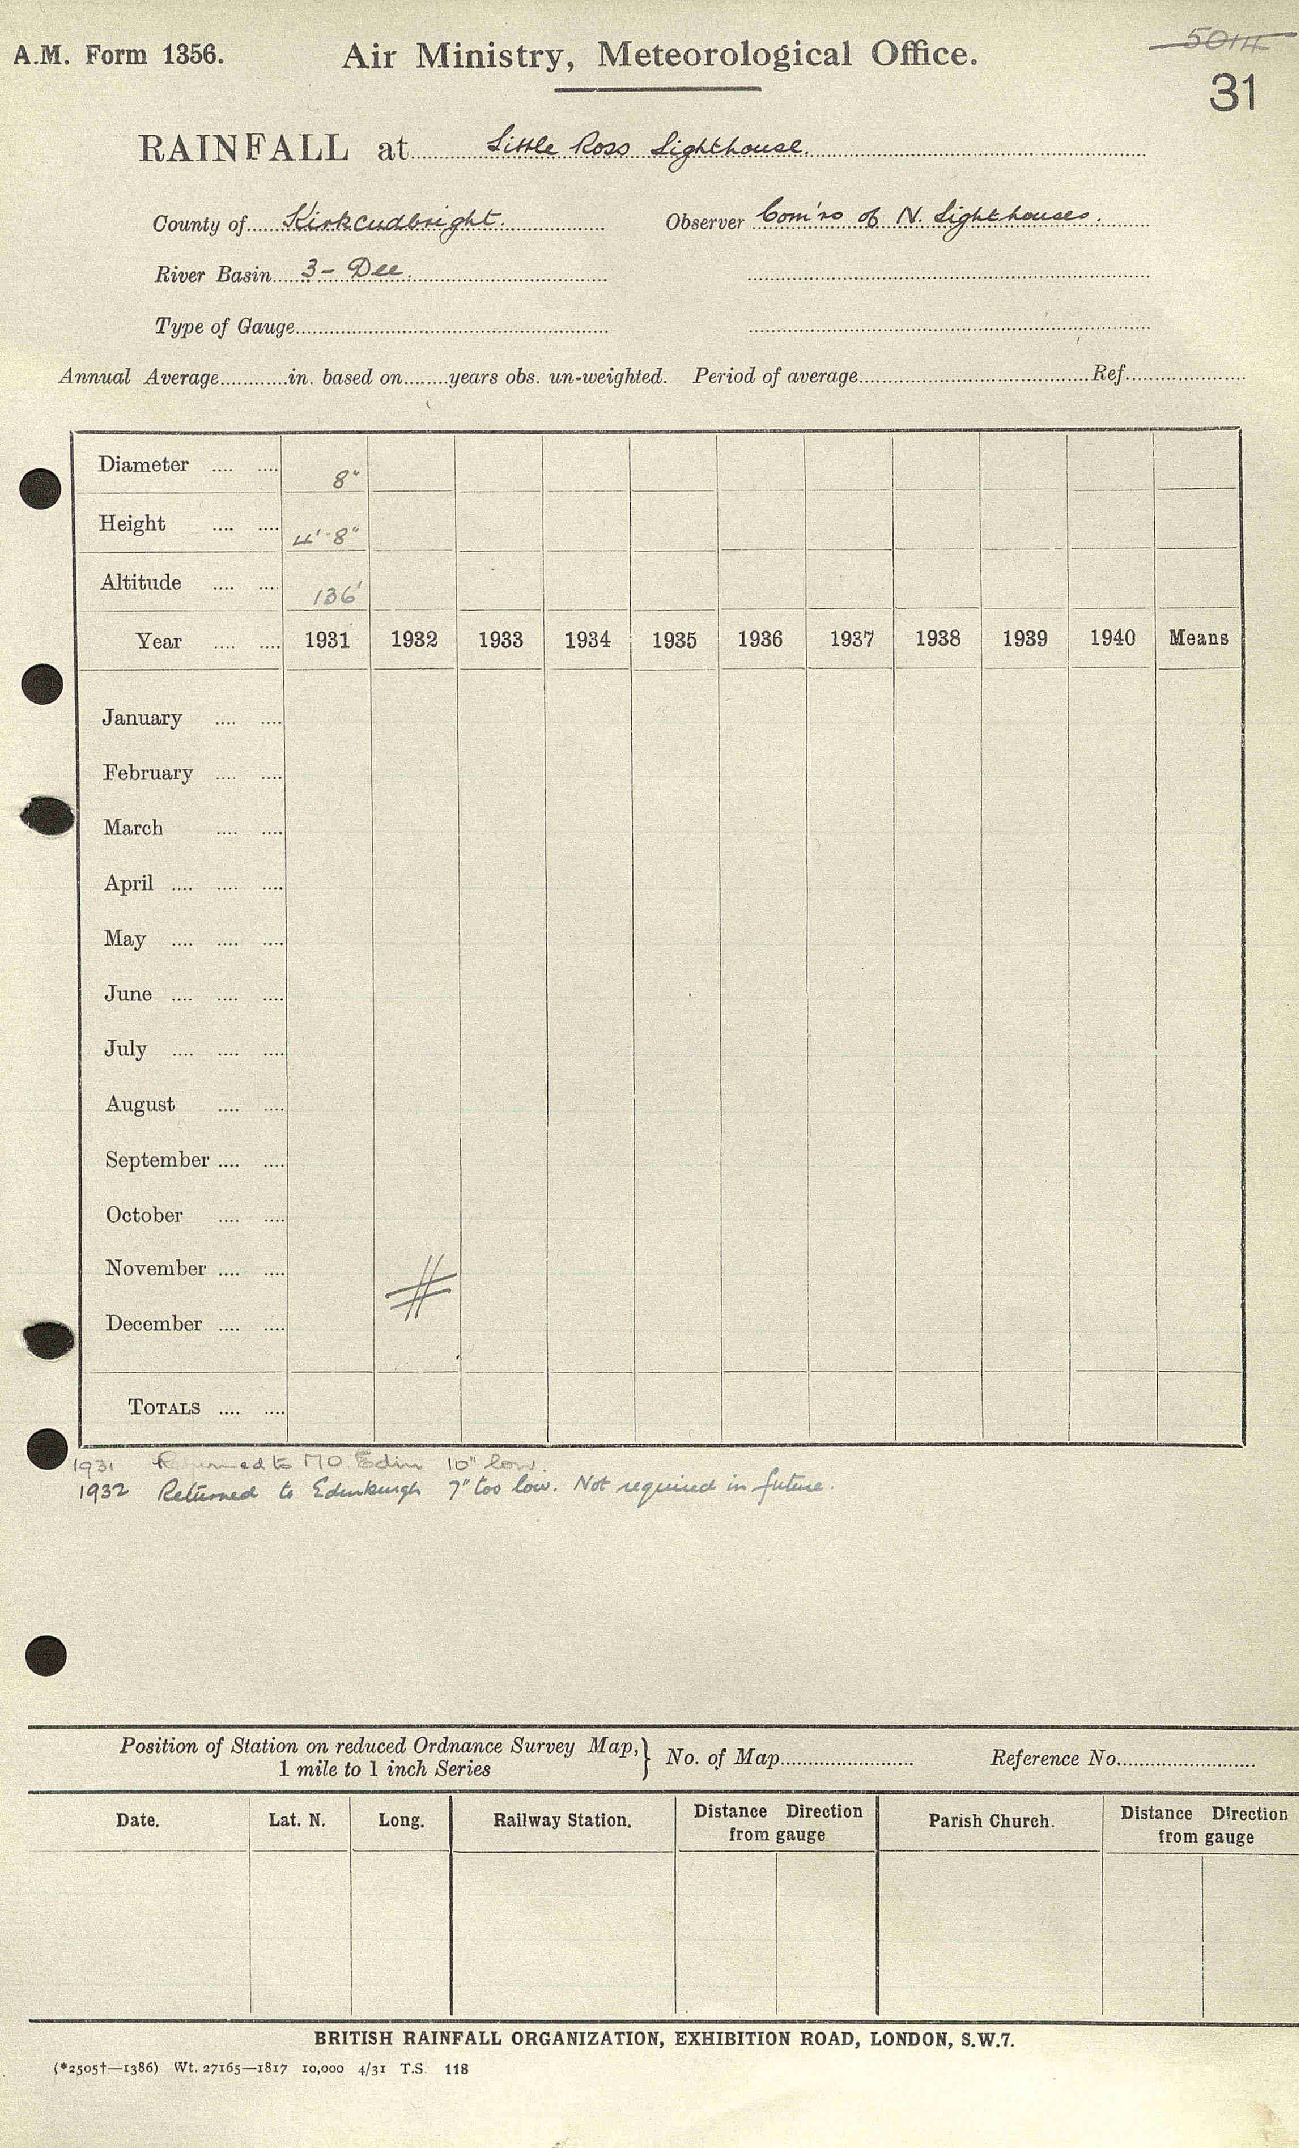 A.M. Form 1356.
Air Ministry, Meteorological Office.
5014
31
RAINFALL at Little Ross Lighthouse.
County of Kirkcudbright. Observer Com'rs of N. Lighthouses.
River Basin 3- Dee.
Type of Gauge
Annual Average in. based on years obs. un-weighted. Period of average Ref.
Diameter 8"
Height 4' 8"
Altitude 136'
Year 1931 1932 1933 1934 1935 1936 1937 1938 1939 1940 Means
January
February
March
April
May
June
July
August
September
October
November
December
TOTALS
1931 Returned to MO. Edin 10" low.
1932 Returned to Edinburgh 7" too low. Not required in future.
Position of Station on reduced Ordnance Survey Map,} No. of Map Reference No.
1 mile to 1 inch Series
Date. Lat. N. Long. Railway Station. Distance Direction Parish Church. Distance Direction
from gauge from gauge
BRITISH RAINFALL ORGANIZATION, EXHIBITION ROAD, LONDON, S.W.7.
(*2505†—1386) Wt. 27165—1817 10,000 4/31 T.S. 118